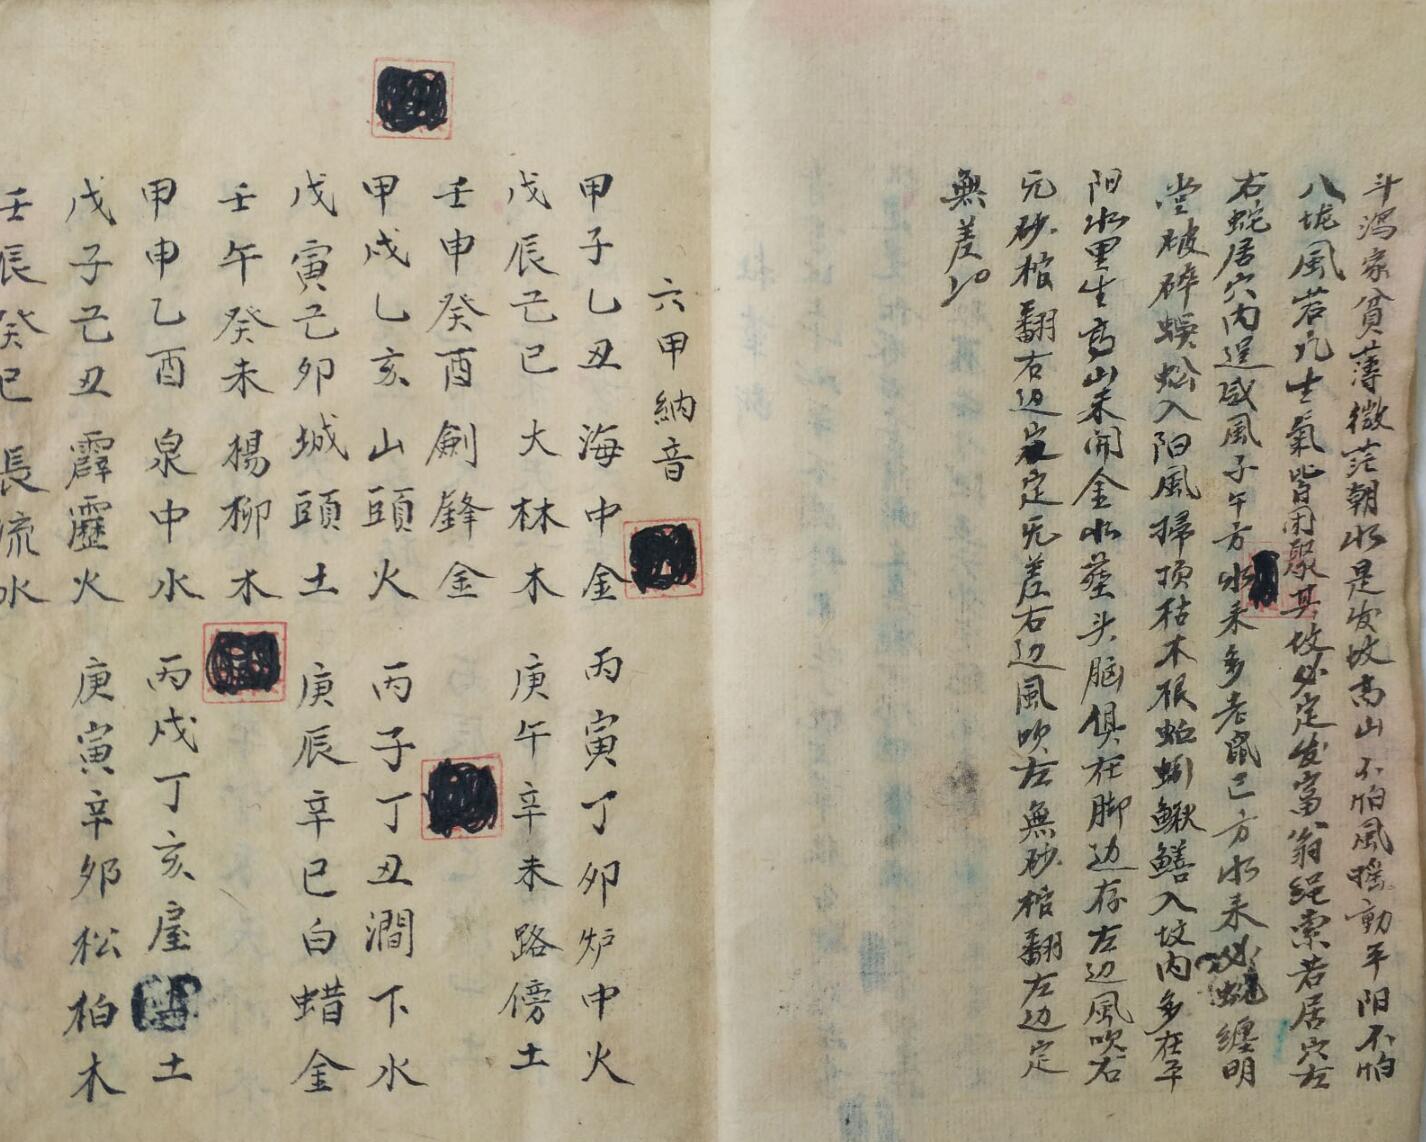 斗瀉家貧薄微茫朝水是发坟高山不怕風搖動平阳不怕
八坭風若凡生氣皆因聚其坟必定发富翁绳索若居穴左
右蛇居穴内逞威風子午方水来多老鼠巳方水来必蛇纏明
堂破碎蜈蚣入阳風掃頂枯木根蚯蚓鳅鱔入坟内多在平
阳水里生高山来開金水塟头脑俱在脚边存左边風吹右
无砂棺翻右边定定无差右边風吹左無砂棺翻左边定
無差
六甲納音
甲子乙丑海中金 丙寅丁卯炉中火
戊辰己巳大林木 庚午辛未路傍土
壬申癸酉劍鋒金
甲戌乙亥山頭火 丙子丁丑澗下水
戊寅己卯城頭土 庚辰辛巳白蜡金
壬午癸未楊柳木
甲申乙酉泉中水 丙戌丁亥屋土
戊子己丑霹靂火 庚寅辛卯松柏木
壬辰癸巳長流水